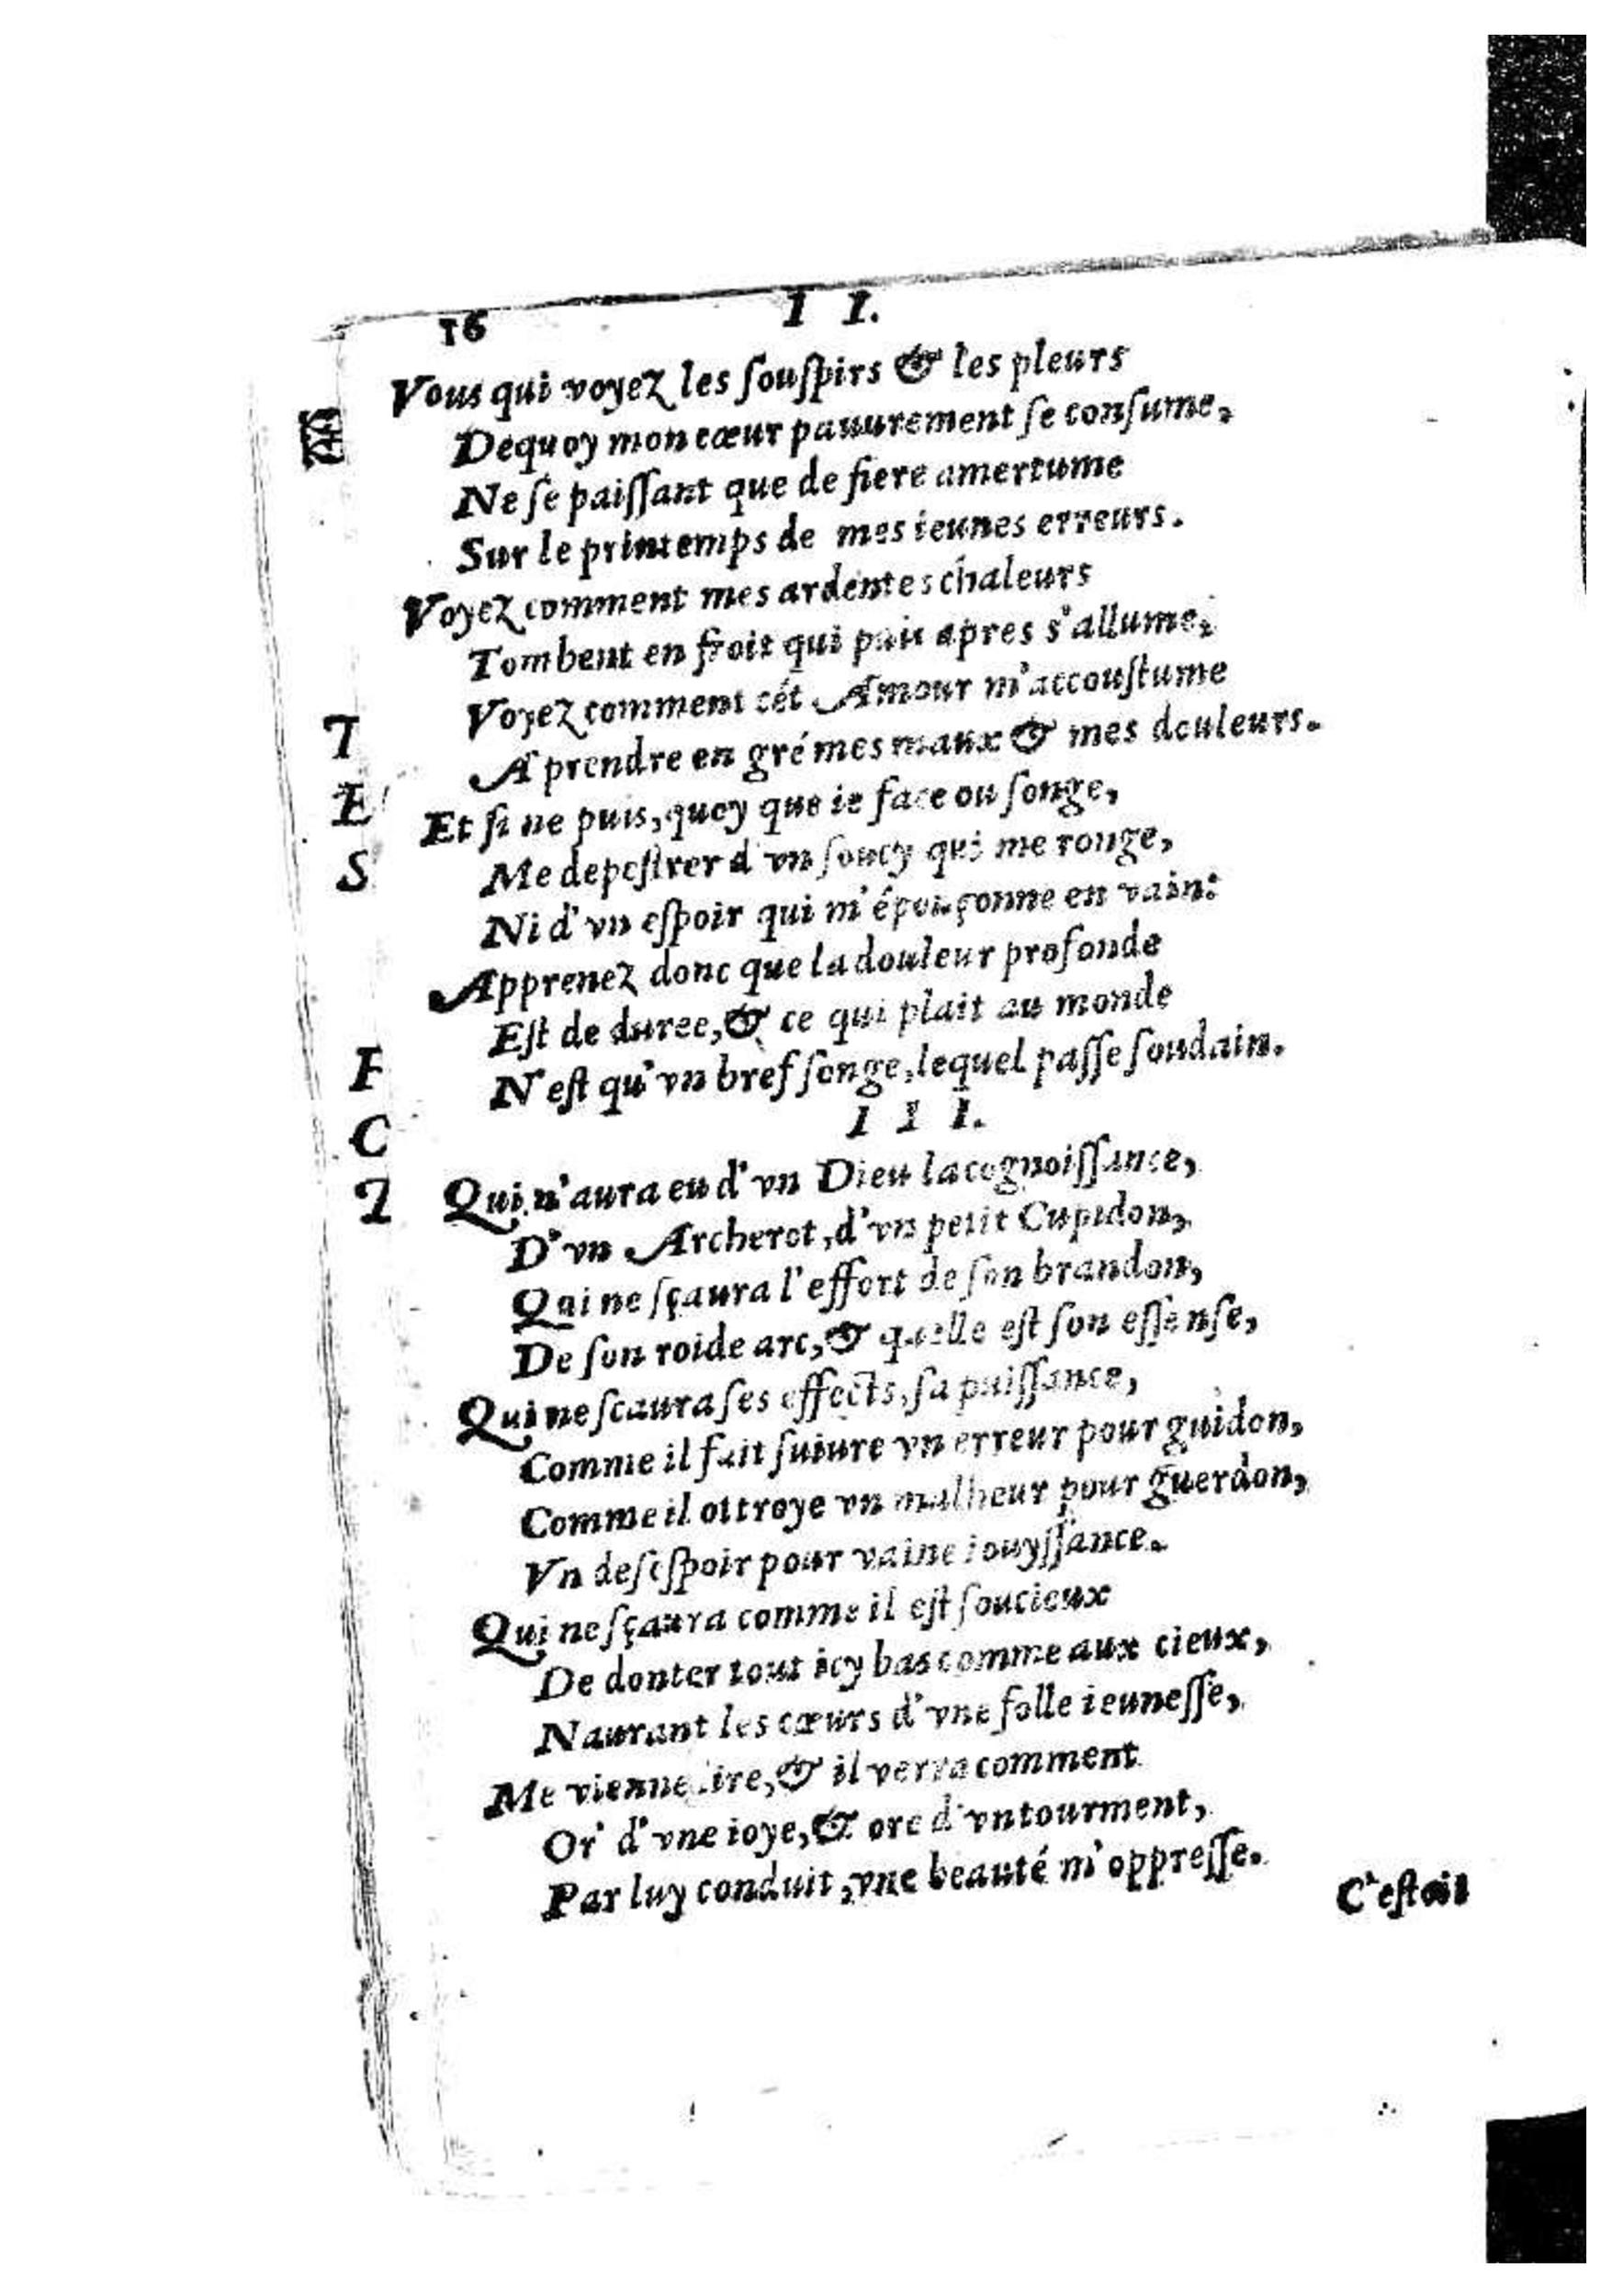 16 I I.
Vous qui voyez les souſpirs & les pleurs
Dequoy mon cœur pauurement ſe conſume,
Ne ſe paiſſant que de fiere amertume
Sur le printemps de mes ieunes erreurs.
Voyez comment mes ardentes chaleurs
Tombent en froit qui puis apres s'allume,
Voyez comment cét Amour m'accouſtume
A prendre en gré mes maux & mes douleurs.
Et ſi ne puis, quoy que ie face ou ſonge,
Me depeſtrer d'vn ſoucy qui me ronge,
Ni d'vn eſpoir qui m'époinçonne en vain:
Apprenez donc que la douleur profonde
Eſt de duree, & ce qui plait au monde
N'eſt qu'vn bref ſonge, lequel paſſe ſoudain.
I I I.
Qui n'aura eu d'vn Dieu la cognoiſſance,
D'vn Archerot, d'vn petit Cupidon,
Qui ne ſçaura l'effort de ſon brandon,
De ſon roide arc, & quelle eſt ſon eſſenſe,
Qui ne ſcaura ſes effects, ſa puiſſance,
Comme il fait ſuiure vn erreur pour guidon,
Comme il ottroye vn malheur pour guerdon,
Vn deſeſpoir pour vaine iouyſſance.
Qui ne ſçaura comme il eſt ſoucieux
De donter tout icy bas comme aux cieux,
Naurant les cœurs d'vne folle ieuneſſe,
Me vienne lire, & il verra comment
Or' d'vne ioye, & ore d'vn tourment,
Par luy conduit, vne beauté m'oppreſſe.
C'eſtoit
T
E
S
F
C